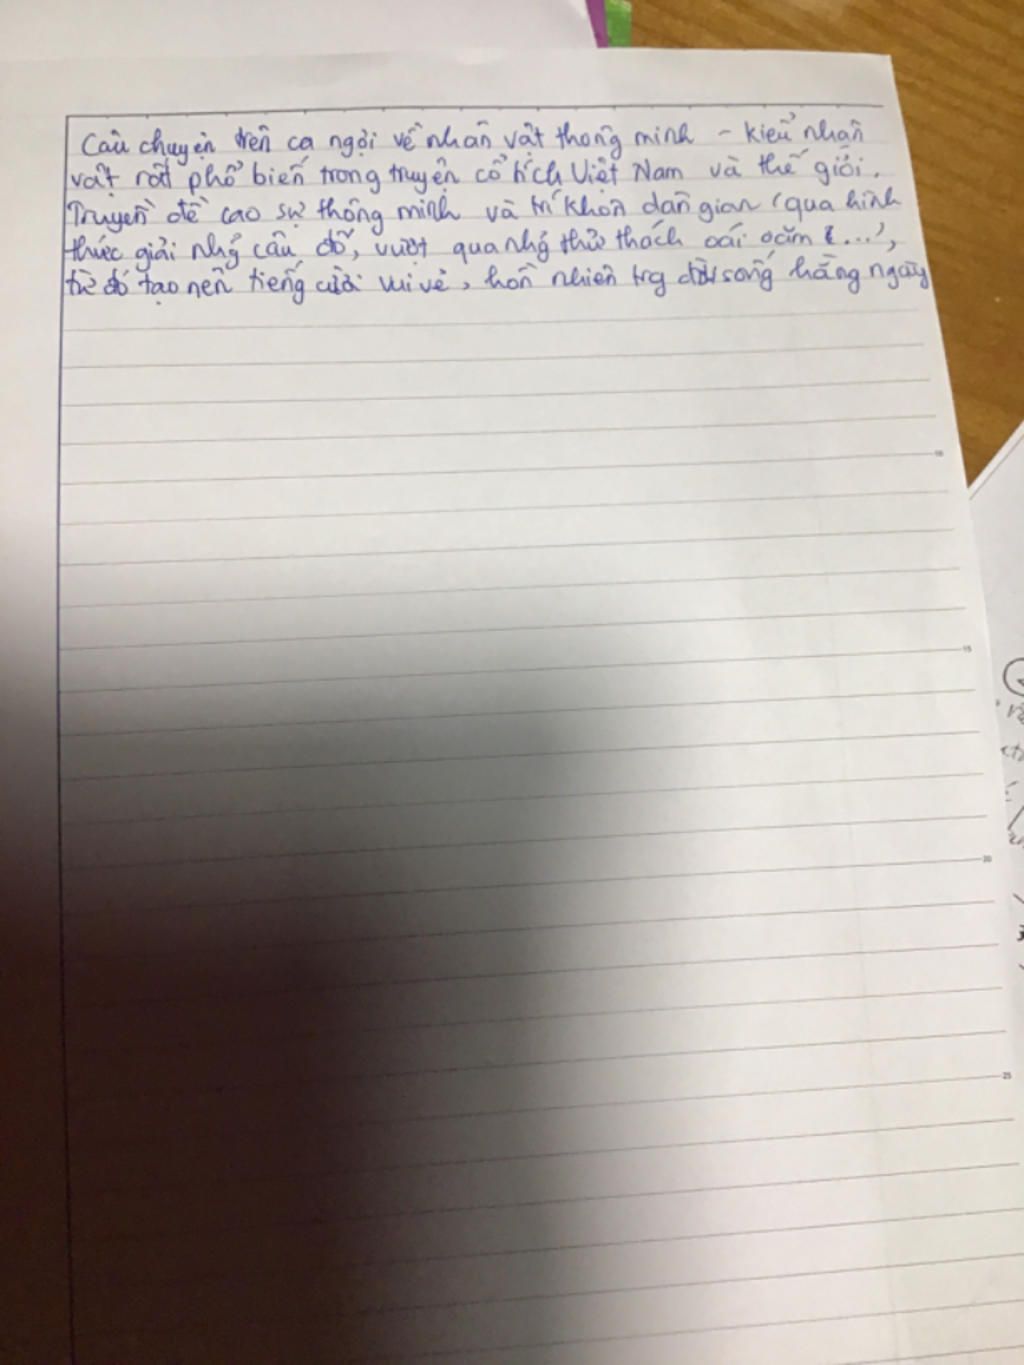 Câu chuyện trên ca ngợi về nhân vật thông minh - kiểu nhân
vật rất phổ biến trong truyện cổ tích Việt Nam và thế giới.
Truyện đề cao sự thông minh và trí khôn dân gian (qua hình
thức giải nhg câu đố, vượt qua nhg thử thách oái oăm (...),
từ đó tạo nên tiếng cười vui vẻ, hồn nhiên trg đời sống hằng ngày
10
15
20
25